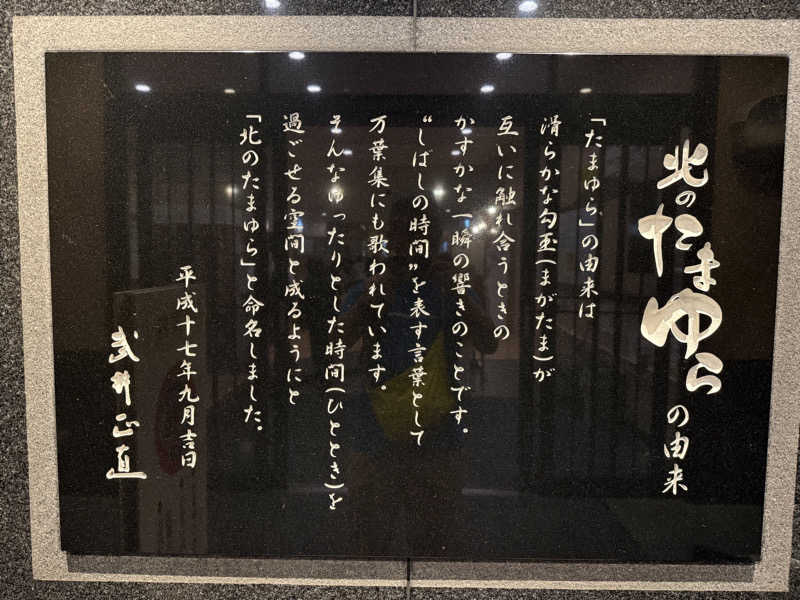 北のたまゆらの由来
「たまゆら」の由来は
滑らかな勾玉(まがたま)が
互いに触れ合うときの
かすかな一瞬の響きのことです。
“しばしの時間”を表す言葉として
万葉集にも歌われています。
そんなゆったりとした時間(ひととき)を
過ごせる空間と成るようにと
「北のたまゆら」と命名しました。
平成十七年九月吉日
武井正直